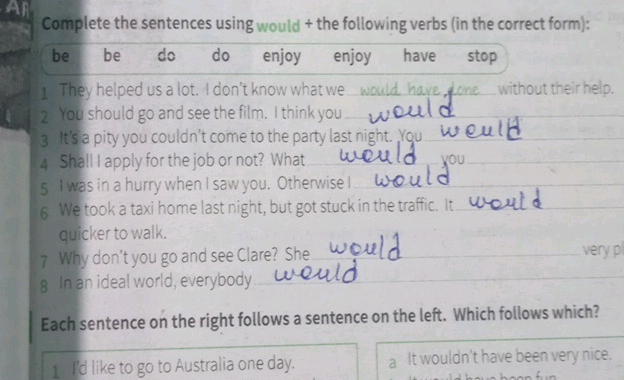 Complete the sentences using would + the following verbs (in the correct form):
be be do do enjoy enjoy have stop
1 They helped us a lot. I don't know what we would have done without their help.
2 You should go and see the film. I think you would
3 It's a pity you couldn't come to the party last night. You would
4 Shall I apply for the job or not? What would you
5 I was in a hurry when I saw you. Otherwise I would
6 We took a taxi home last night, but got stuck in the traffic. It would
quicker to walk.
7 Why don't you go and see Clare? She would very
8 In an ideal world, everybody would
Each sentence on the right follows a sentence on the left. Which follows which?
1 I'd like to go to Australia one day.
a It wouldn't have been very nice.